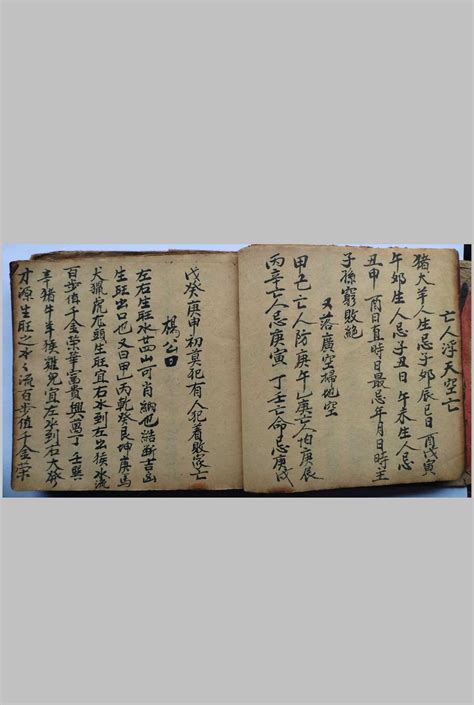 亡人浮天空亡
猪犬羊人生忌子卯辰巳日酉戌寅
午卯生人忌子丑日午未生人忌
丑申酉日直時日最忌年月日時主
子孫窮敗絶
又落廣空掃地空
甲己亡人防庚午乙庚亡人怕庚辰
丙辛亡人忌庚寅丁壬亡命忌庚戌
戊癸庚申初莫犯有人犯着敗家亡
楊公曰
左右生旺水廿四山可肖納也結斷吉凶
生旺出口也又曰甲乙丙乾癸艮坤庚馬
犬獵虎左頭生旺宜右水到左出猴水流
百步值千金榮華富貴興萬丁壬巽
辛猪牛羊猴雞兔宜左水到右大發
才源生旺之水々流百步值千金榮